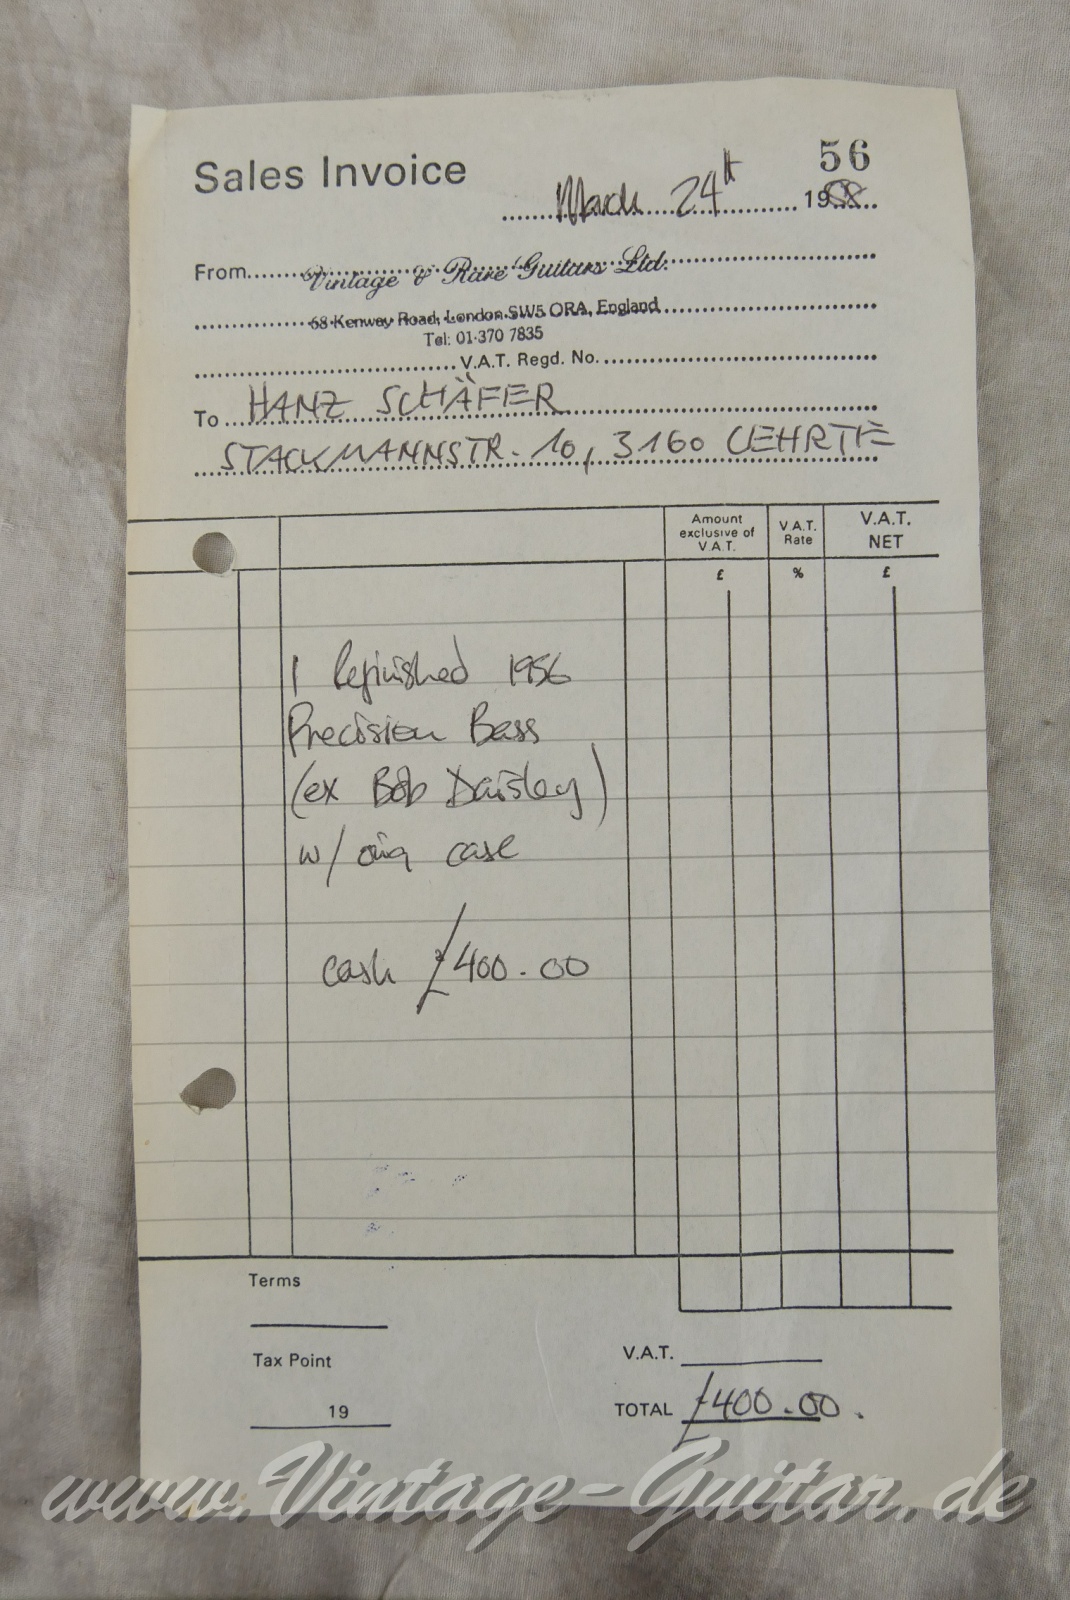 56
Sales Invoice
March 24th 19
From Vintage & Rare Guitars Ltd.
68 Kenway Road, London SW5 ORA, England
Tel: 01-370 7835
V.A.T. Regd. No.
To HANZ SCHÄFER
STACKMANNSTR. 10, 3160 LEHRTE
Amount exclusive of V.A.T.
V.A.T. Rate
V.A.T. NET
£ % £
1 Refinished 1956
Precision Bass
(ex Bob Daisley)
w/ orig case
cash £400.00
Terms
Tax Point
19
V.A.T.
TOTAL £400.00.
www.Vintage-Guitar.de